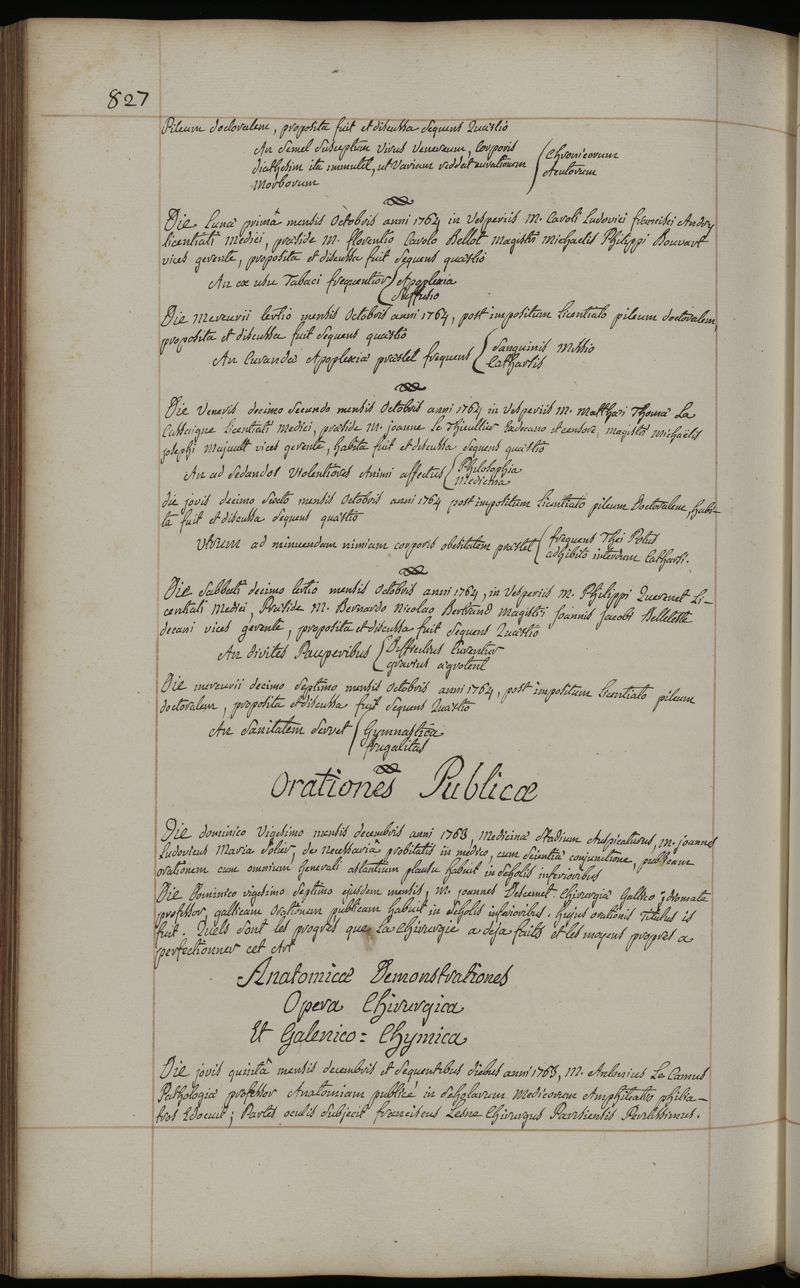 827
Pileum doctoralem, proposita fuit et discussa sequens Quæstio
An semel susceptum virus venereum, Corporis
diathesim ita immutet, ut variam reddat curationem { Chronicorum
Morborum { Acutorum
Die Lunæ primâ mensis Octobris anni 1764 in Vesperiis M. Caroli Ludovici francisci Andry
licentiati Medici, præside M. florentio Carolo Bellot Magistri Michaelis Philippi Bouvart
vices gerente, proposita et discussa fuit sequens quæstio
An ex usu Tabaci frequentior { Apoplexia
{ Suffusio
Die Mercurii tertio mensis Octobris anni 1764, post impositum licentiato pileum doctoralem,
proposita et discussa fuit sequens quæstio
An Curandæ Apoplexiæ præstet frequens { Sanguinis Missio
{ Catharsis
Die Veneris decimo secundo mensis Octobris anni 1764 in Vesperiis M. Matthæi Thomæ La
Cassaigne licentiati Medici, præside M. joanne le Thieullier Exdecano et censore, magistri Michaëlis
josephi Majault vices gerente, habita fuit et discussa sequens quæstio
An ad sedandos violentiores Animi affectus { Philosophia
{ Medicina
die jovis decimo sexto mensis Octobris anni 1764 post impositum licentiato pileum Doctoralem, habi-
ta fuit et discussa sequens quæstio
Utrum ad minuendam nimiam corporis obesitatem præstet { frequens Thei Potus
{ adhibita interdum Catharsi.
Die Sabbati decimo tertio mensis Octobris anni 1764, in Vesperiis M. Philippi Quervet Li-
centiati Medici, Præside M. Bernardo Nicolao Bertrand Magistri Joannis Jacobi Belleteste
decani vices gerente, proposita et discussa fuit sequens Quæstio
An divites Pauperibus { Difficilius Curentur
{ gravius ægrotent
Die mercurii decimo septimo mensis Octobris anni 1764, post impositum licentiato pileum
doctoralem, proposita et discussa fuit sequens Quæstio
An Sanitatem servet { Gymnastica
{ frugalitas
Orationes Publicæ
Die dominico Vigesimo mensis decembris anni 1763, Medicinæ Stadium Auspicaturus, M. joannes
Ludovicus Maria Solier, de necessariâ probitatis in medico, cum scientiâ conjunctione, publicam
orationem cum omnium generali astantium plausu habuit in scholis inferioribus
Die Dominico vigesimo septimo ejusdem mensis, M. joannes Descemet Chirurgiæ Gallico idiomate
professor, gallicam Orationem publicam habuit in scholis inferioribus. hujus orationis Titulus is
fuit. Quels sont les progrès que la Chirurgie a deja faits et les moyens propres a
perfectionner cet Art
Anatomicæ Demonstrationes
Opera Chirurgica
Et Galenico=Chymica
Die jovis quintâ mensis decembris et sequentibus diebus anni 1763, M. Antonius Le Camus
Pathologiæ professor Anatomiam publicè in scholarum Medicorum Amphiteatro philia-
tros Edocuit; Partes oculis subjecit franciscus Lesne Chirurgus Parisiensis Peritissimus.